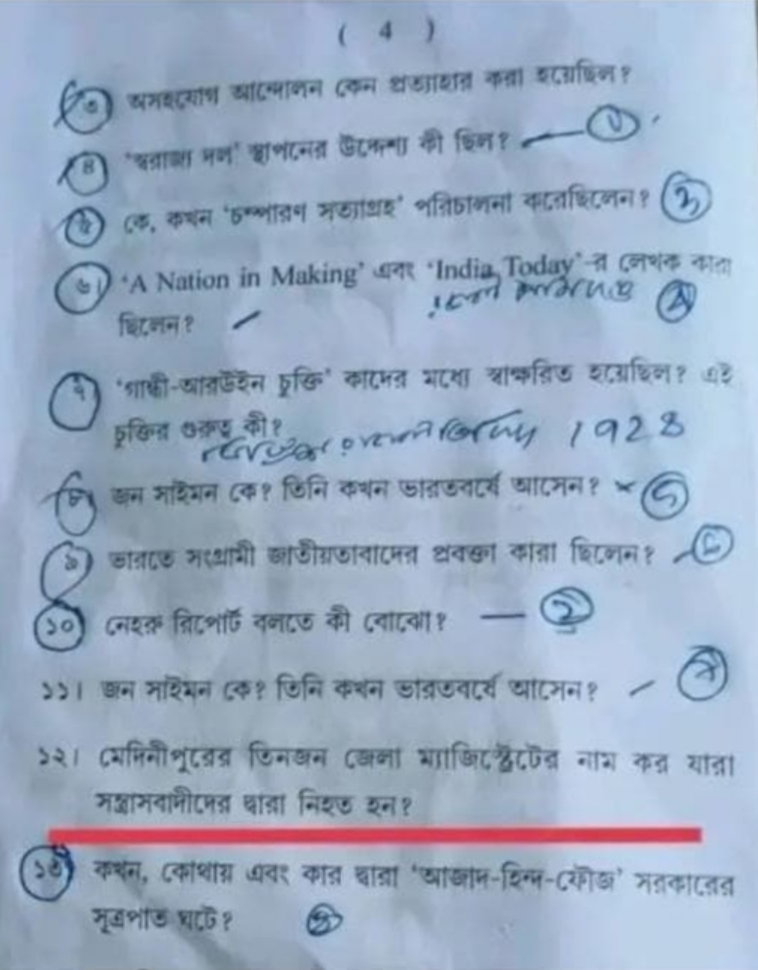 ( 4 )
৩ অসহযোগ আন্দোলন কেন প্রত্যাহার করা হয়েছিল?
৪ 'স্বরাজ্য দল' স্থাপনের উদ্দেশ্য কী ছিল?
৫ কে, কখন 'চম্পারণ সত্যাগ্রহ' পরিচালনা করেছিলেন?
৬। 'A Nation in Making' এবং 'India Today'-র লেখক কারা
ছিলেন?
৭ 'গান্ধী-আরউইন চুক্তি' কাদের মধ্যে স্বাক্ষরিত হয়েছিল? এই
চুক্তির গুরুত্ব কী?
1928
৮ জন সাইমন কে? তিনি কখন ভারতবর্ষে আসেন?
৯ ভারতে সংগ্রামী জাতীয়তাবাদের প্রবক্তা কারা ছিলেন?
১০ নেহরু রিপোর্ট বলতে কী বোঝো?
১১। জন সাইমন কে? তিনি কখন ভারতবর্ষে আসেন?
১২। মেদিনীপুরের তিনজন জেলা ম্যাজিস্ট্রেটের নাম কর যারা
সন্ত্রাসবাদীদের দ্বারা নিহত হন?
১৩ কখন, কোথায় এবং কার দ্বারা 'আজাদ-হিন্দ-ফৌজ' সরকারের
সূত্রপাত ঘটে?